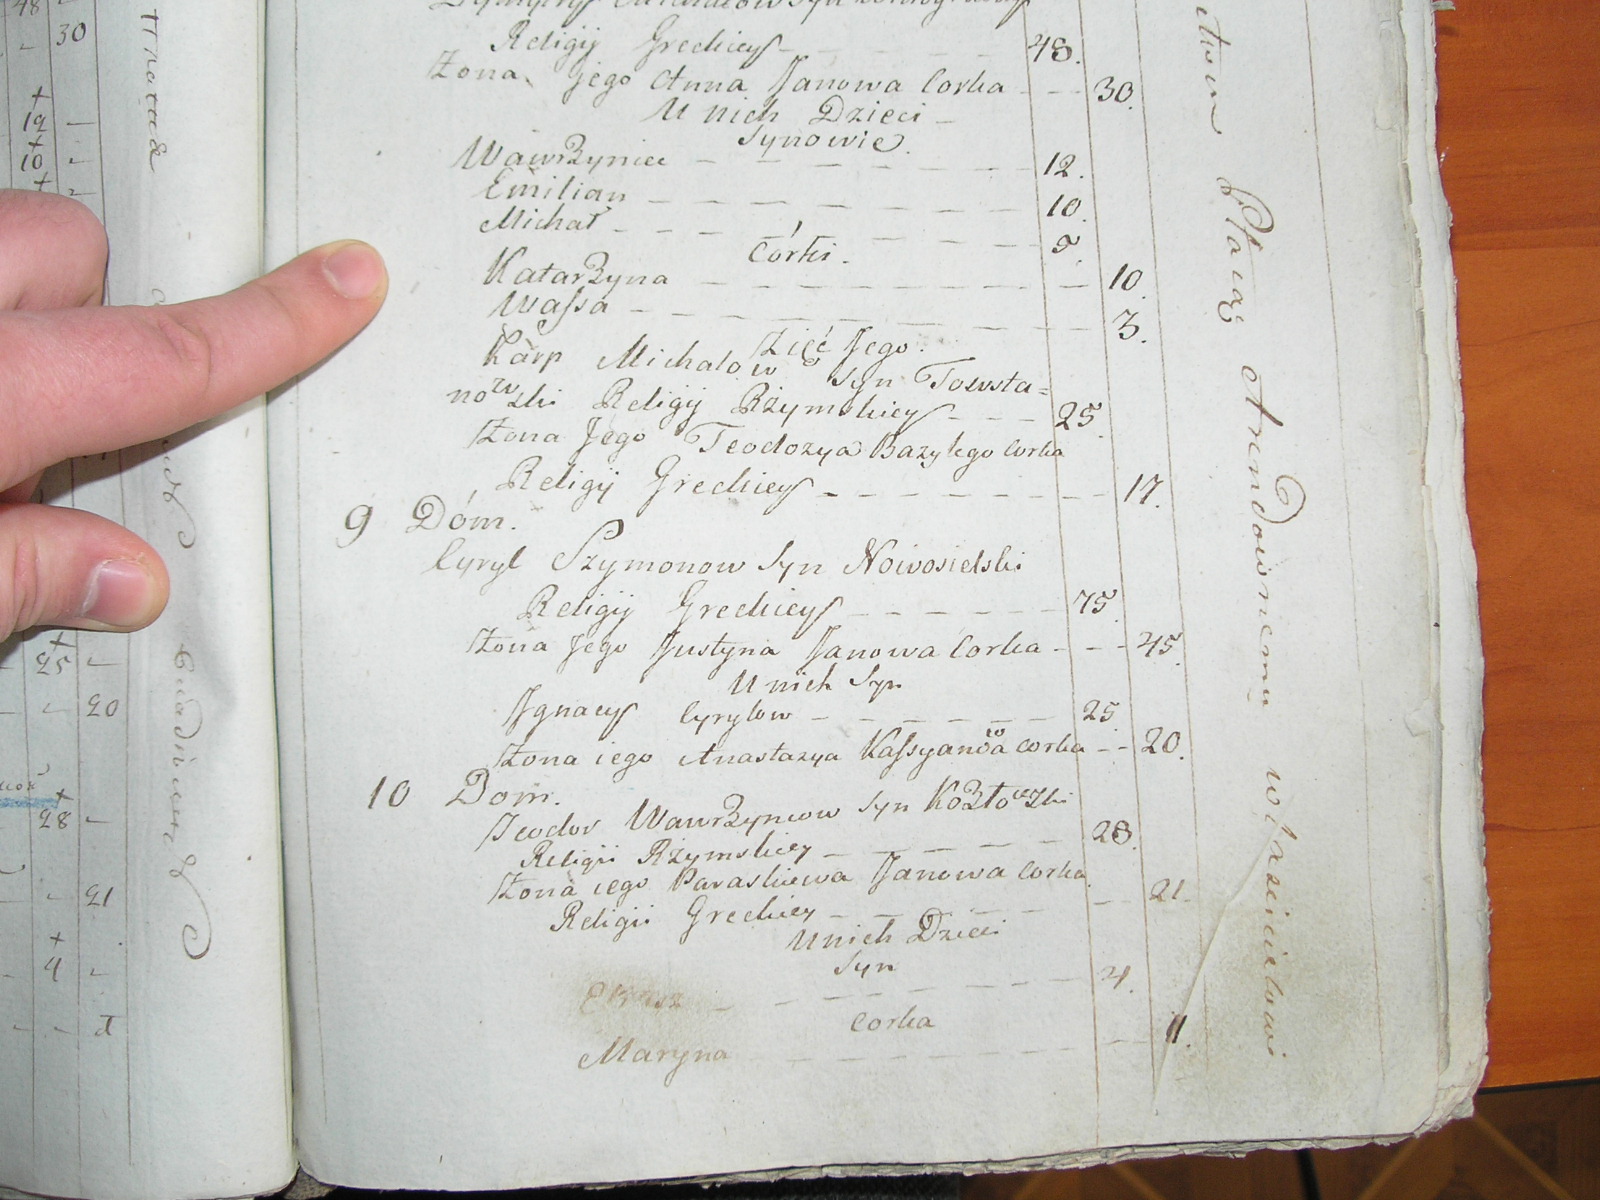 Religij Greckiey - - - 48.
Żona jego Anna Janowa Corka - - 30.
U nich Dzieci -
Synowie.
Wawrzyniec - - - 12.
Emilian - - - 10.
Michał - - - 5.
Córki.
Katarzyna - - - 10.
Wassa - - - 3.
Zięć Jego.
Karp Michalow Syn Towsta=
nowski Religij Rzymskiey - - - 25.
Żona Jego Teodozya Bazylego Corka
Religij Greckiey - - - 17.
9 Dóm.
Cyryl Szymonow Syn Nowosielski
Religij Greckiey - - - 75
Żona Jego Justyna Janowa Corka - - - 45.
U nich Syn
Jgnacy Cyrylow - - - 25
Żona iego Anastazya Kassyanowa corka - - 20.
10 Dom.
Teodor Wawrzyncow Syn Kozłowski
Religii Rzymskiey - - - 28.
Żona iego Paraskiewa Janowa Corka
Religii Greckiey - - - 21.
U nich Dzieci
Syn
- - - 4.
Corka
Maryna - - - 11.
Płacąc Arendownemu
48 -
- 30
19 -
10 -
25 -
- - 20
28 -
- 21
4 -